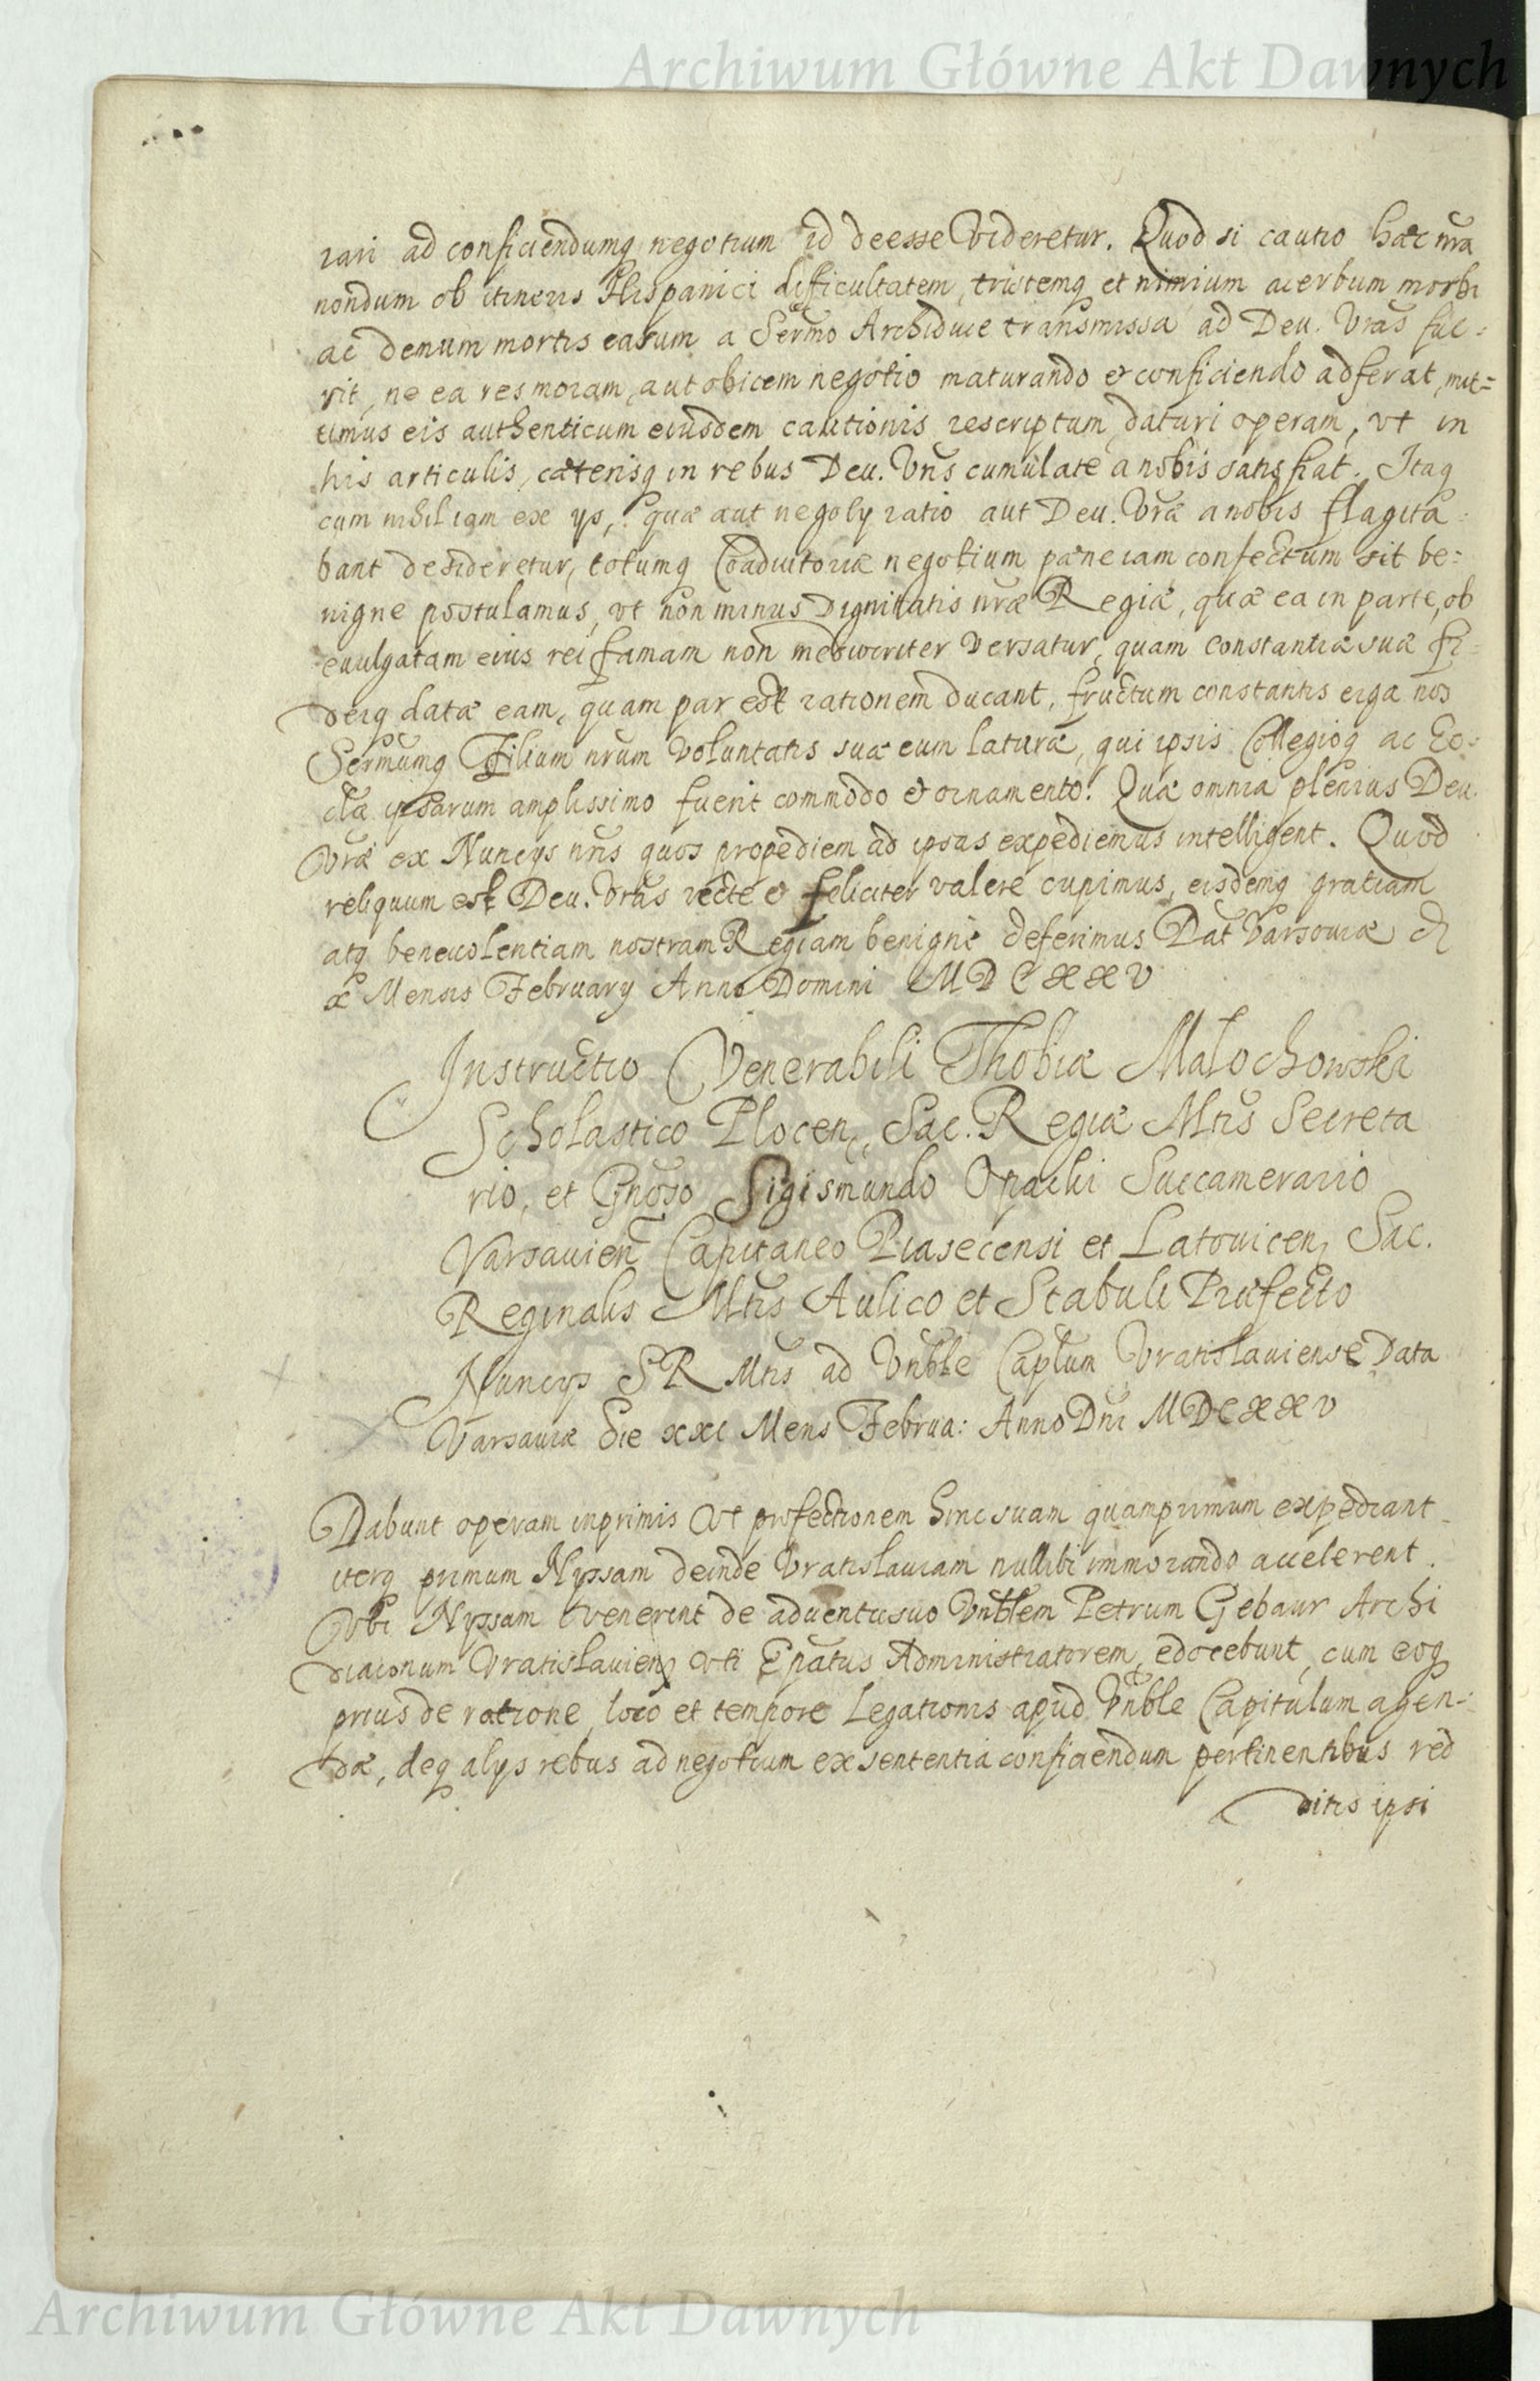 Archiwum Główne Akt Dawnych
rari ad conficiendumq negotium id deesse videretur. Quod si cautio hæc nra
nondum ob itineris Hispanici difficultatem, tristemq et nimium acerbum morbi
ac demum mortis casum a Sermo Archiduce transmissa ad Deu. Vras fue-
rit, ne ea res moram, aut obicem negotio maturando & conficiendo adferat, mit=
timus eis authenticum eiusdem cautionis rescriptum, daturi operam, vt in
his articulis, cæterisq in rebus Deu. Vris cumulate a nobis satisfiat. Itaq
cum nihil iam ex ys, quæ aut negoty ratio aut Deu. Vræ a nobis flagita-
bant desideretur, totumq Coadiutoriæ negotium pæne iam confectum sit be=
nigne postulamus, vt non minus Dignitatis nræ Regiæ, quæ ea in parte, ob
euulgatam eius rei famam non mediocriter versatur, quam constantiæ suæ fi-
deiq datæ eam, quam par est rationem ducant, fructum constantis erga nos
Sermumq Filium nrum voluntatis suæ eum laturæ, qui ipsis Collegioq ac Ec-
clæ ipsarum amplissimo fuerit commodo & ornamento. Quæ omnia plenius Deu.
Vræ ex Nuncys nris quos propediem ad ipsas expediemus intelligent. Quod
reliquum est Deu. Vras recte & feliciter valere cupimus, eisdemq gratiam
atq beneuolentiam nostram Regiam benignè deferimus Dat Varsouiæ d
x Mensis February Anno Domini MDCXXV
Instructio Venerabili Thobiæ Małochowski
Scholastico Plocen, Sac. Regiæ Mtis Secreta
rio, et Gnoso Sigismundo Opacki Succamerario
Varsauien Capitaneo Piasecensi et Latouicen, Sac.
Reginalis Mtis Aulico et Stabuli Præfecto
Nuncys SR Mtis ad Vnble Caplum Vratislauiense Data
Varsauiæ die xxi Mens Februa: Anno Dni MDCXXV
Dabunt operam inprimis vt profectionem hinc suam quamprimum expediant
iterq primum Nyssam deinde Vratislauiam nullibi immorando accelerent.
Vbi Nyssam venerint de aduentu suo Vnblem Petrum Gebaur Archi
diaconum Vratislauien, vti Epatus Administratorem, edocebunt, cum eoq
prius de ratione, loco et tempore Legationis apud Vnble Capitulum agen-
dæ, deq alys rebus ad negotium ex sententia conficiendum pertinentibus red
ditis ipsi
Archiwum Główne Akt Dawnych